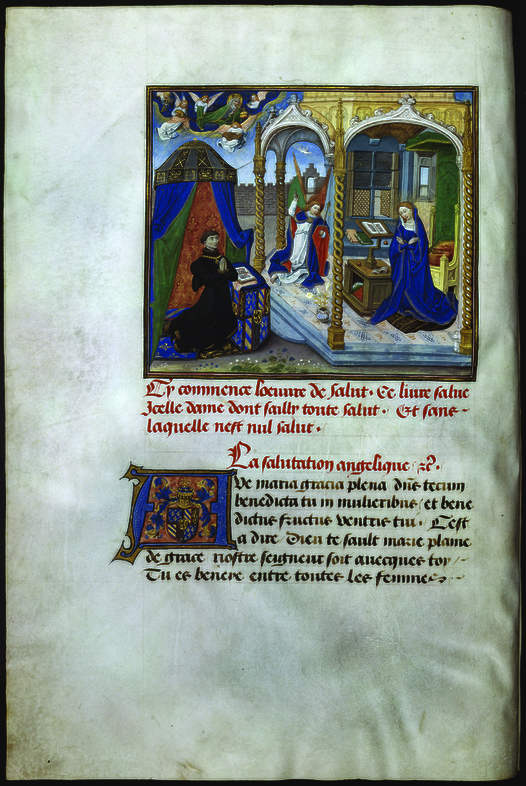 Cy commence loeuure de salut. Ce liure salue
Jcelle dame dont sailly toute salut. Et sans
laquelle nest nul salut.
La salutation angelique &c.
Aue maria gracia plena dñs tecum
benedicta tu in mulieribus / et bene
dictus fructus ventris tui. Cest
a dire Dieu te sault marie plaine
de grace nostre seigneur soit auecques toy /
Tu es beneye entre toutes les femmes